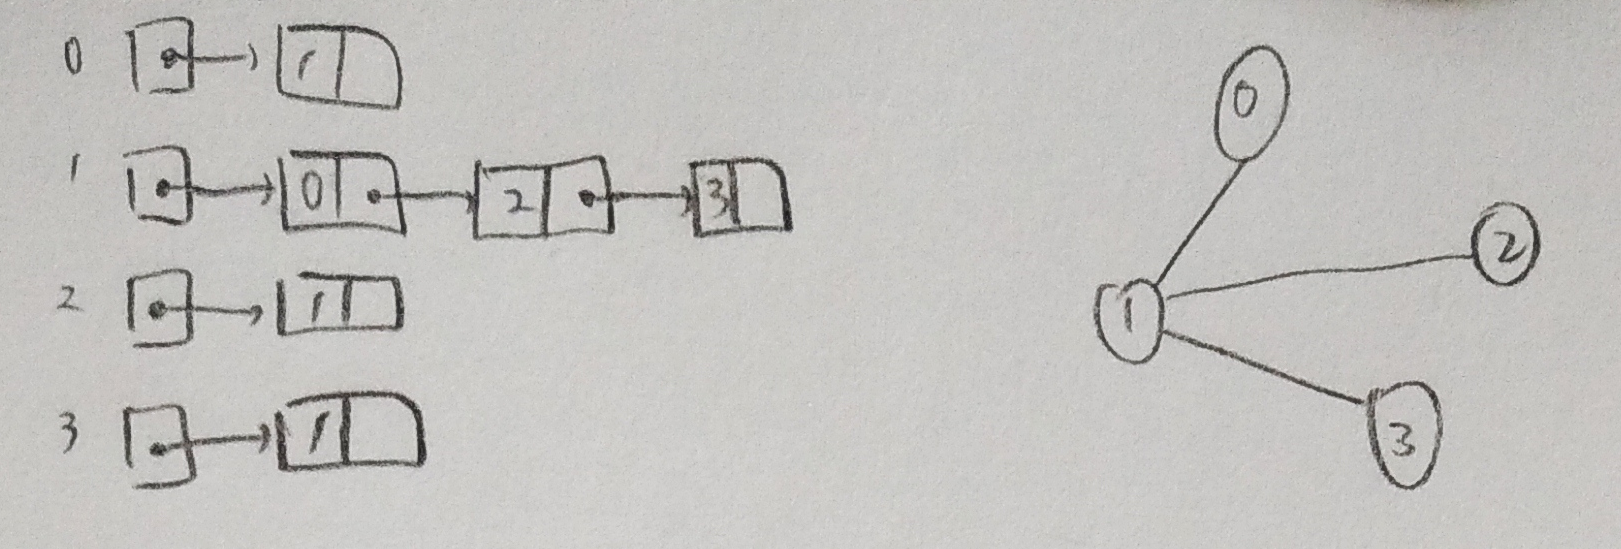 0 1
1 0 2 3
2 1
3 1
0
2
1
3